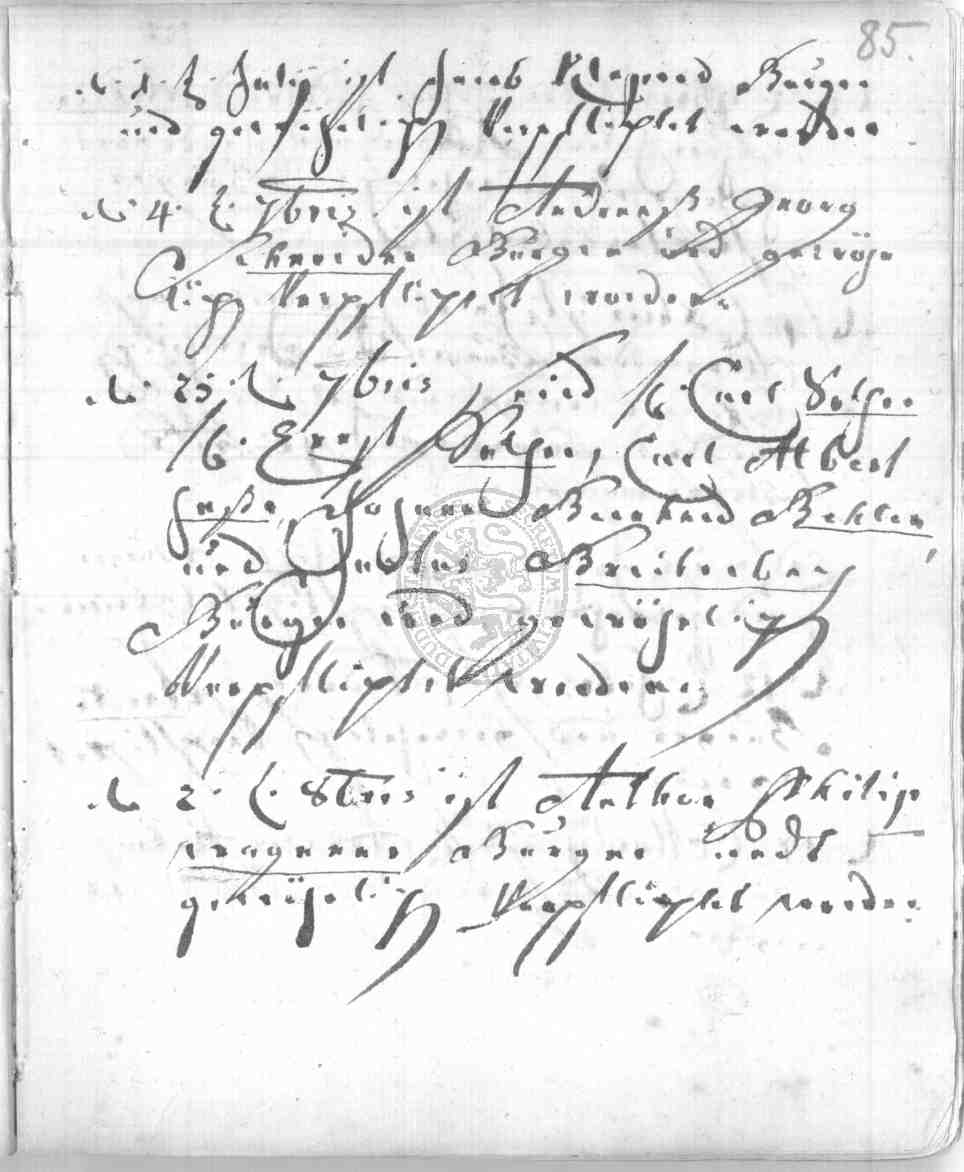 85.
d. 1. t. July ist Jacob Burger
und gewöhnlich Verpflichtet worden
d. 4. t. 7bris ist Andreas Georg
Schneider Burger und gewöhn
lich Verpflichtet worden.
d. 23. t. 7bris sind H. Carl
H. Ernst Carl Albert
Johann Bernhard
und Justus Breidenbach
Bürger und gewöhnlich
Verpflichtet worden.
d. 2. t. 8bris ist Anthon Philip
wagener Burger undt
gewöhnlich Verpflichtet worden.